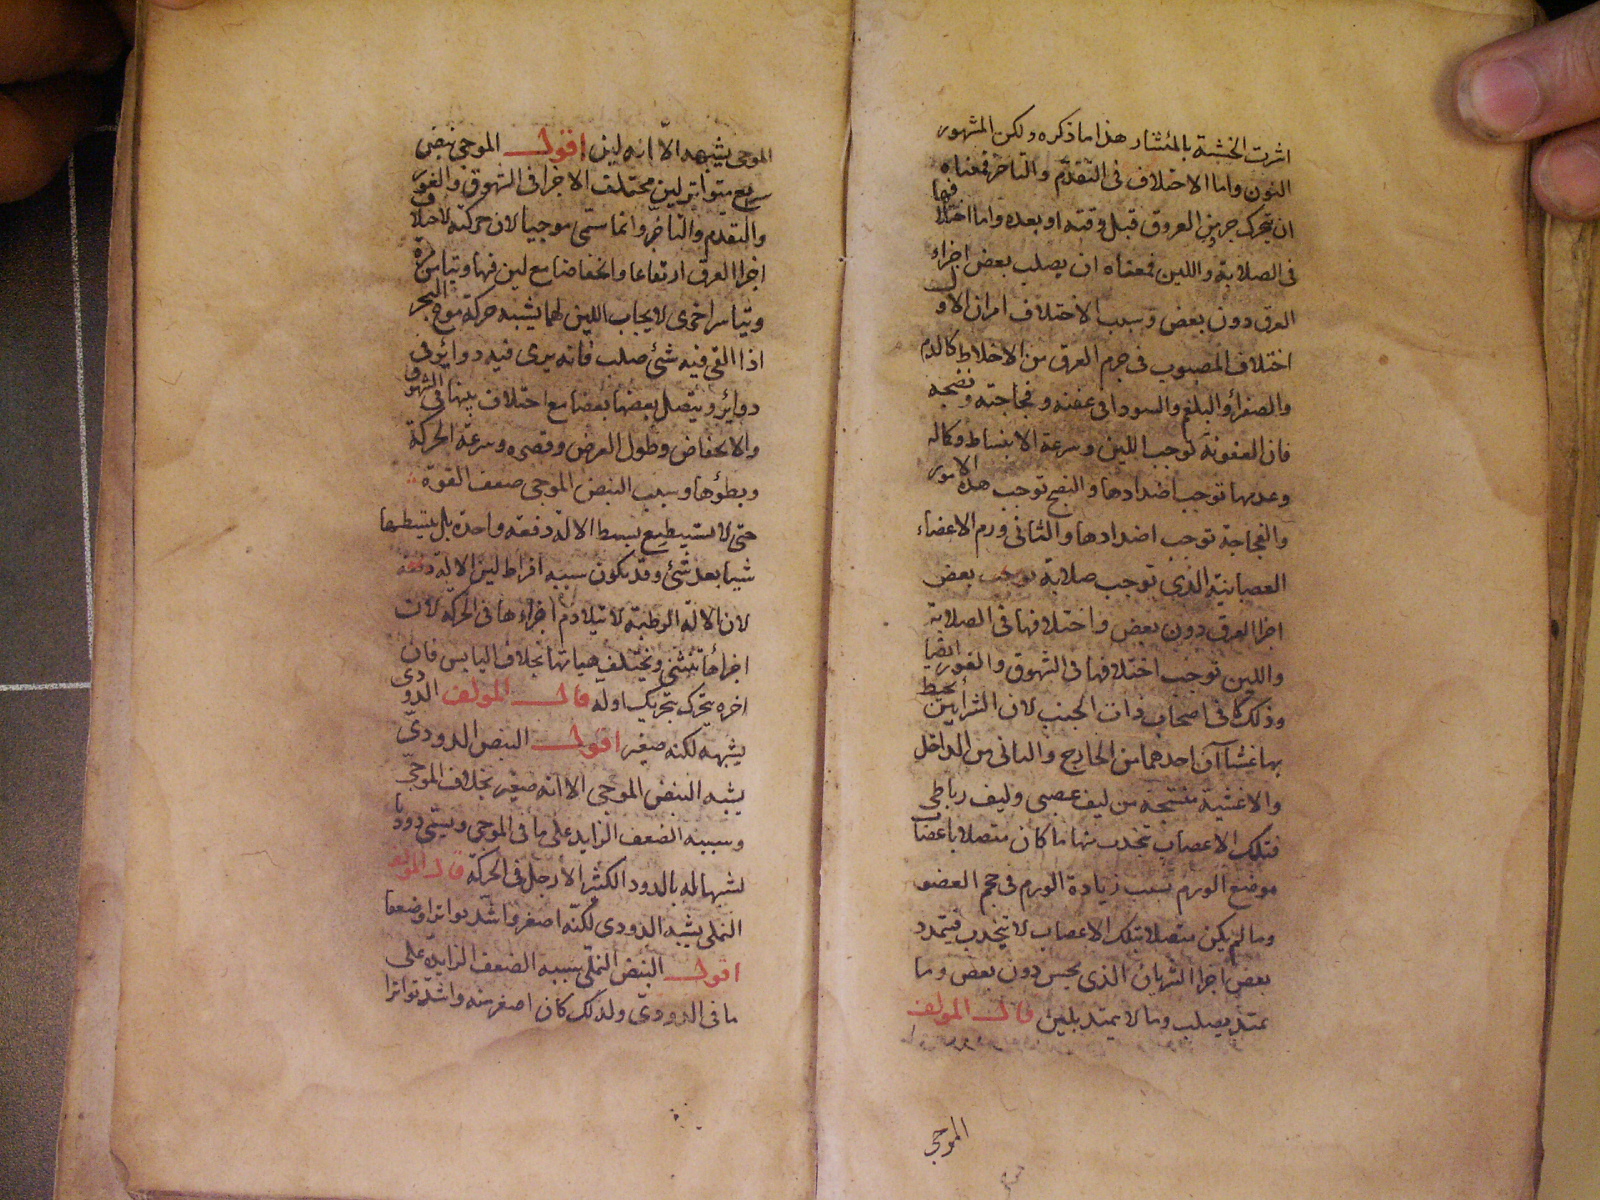 اثرت الخشبة بالمنشار هذا ما ذكره ولكن المشهور
النون واما الاختلاف فى التقدم والتاخر فمعناه
ان تتحرك جزء من العروق قبل وقته او بعده واما اختلافها
فى الصلابة واللين فمعناه ان يصلب بعض اجزاء
العرق دون بعض وسبب الاختلاف امران الاول
اختلاف المصبوب فى جرم العرق من الاخلاط كالدم
والصفراء والبلغم والسودا فى عفنه وفجاجته ونضجه
فان العفونة توجب اللين وسرعة الانبساط وكماله
وعدمها توجب اضدادها والنضج توجب هذه الامور
والفجاجة توجب اضدادها والثانى ورم الاعضاء
العصبانية الذى توجب صلابة بعض
اجزا العرق دون بعض واختلافها فى الصلابة
واللين توجب اختلافها فى الشهوق والغور ايضا
وذلك كما فى اصحاب ذات الجنب لان الشرايين يحيط
بها غشاآن احدهما من الخارج والثانى من الداخل
والاغشية منتسجة من ليف عصبى وليف رباطى
فتلك الاعصاب تنجذب منها ما كان متصلا باعصاب
موضع الورم بسبب زيادة الورم فى حجم العضو
وما لم يكن متصلا بتلك الاعصاب لا ينجذب فيتمدد
بعض اجزا الشريان الذى يحس دون بعض وما
يمتد يصلب وما لا يمتد يلين قال المولف
الموجى
الموجى يشبهه الا انه لين اقول الموجى نبض
سريع متواتر لين مختلف الاجزا فى الشهوق والغور
والتقدم والتاخر وانما سمى موجيا لان حركته لاختلاف
اجزا العرق ارتفاعا وانخفاضا مع لين فيها وتيامن مرة
وتياسر اخرى لايجاب اللين لهما يشبه حركة موج البحر
اذا القى فيه شئ صلب فانه يرى فيه دوائر فى
دوائر ويتصل بعضها بعضا مع اختلاف بينها فى الشهوق
والانخفاض وطول العرض وقصره وسرعة الحركة
وبطؤها وسبب النبض الموجى ضعف القوة
حتى لا يستطيع بسط الالة دفعة واحدة بل يبسطها
شيا بعد شئ وقد يكون سببه افراط لين الالة دفعة
لان الالة الرطبة لا يتلازم اجزاءها فى الحركة لان
اجزاءها تنثنى ويختلف هياتها بخلاف اليابس فان
اخره يتحرك بتحريك اوله قال المولف الدودى
يشبهه لكنه صغير اقول النبض الدودى
يشبه النبض الموجى الا انه صغير بخلاف الموجى
وسببه الضعف الزايد على ما فى الموجى ويسمى دوديا
لشبهها له بالدود الكثير الارجل فى الحركة قال المولف
النملى يشبه الدودى لكنه اصغر واشد تواترا وضعفا
اقول النبض النملى سببه الضعف الزايد على
ما فى الدودى ولذلك كان اصغر منه واشد تواترا